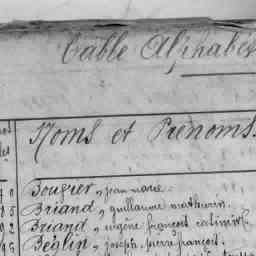 Table Alphabét
Noms et Prénoms.
Bougier, jean marie.
Briand, guillaume mathurin.
Briand, eugène françois
Béglin, joseph, pierre françois.